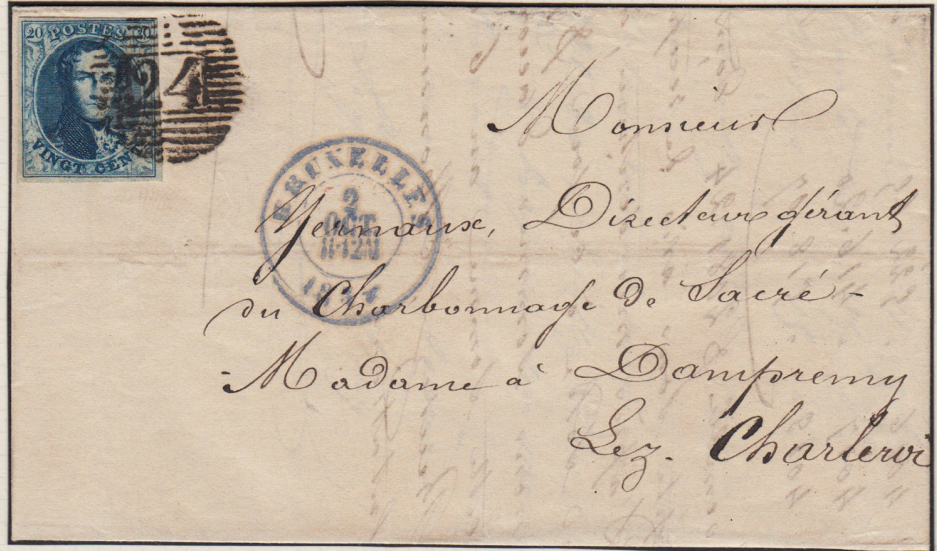 20 POSTES 20
VINGT CEN
24
BRUXELLES
2
OCT.
11-12M
Monsieur
Yernaux, Directeur gérant
du Charbonnage de Sacré-
Madame à Dampremy
Lez-Charleroi